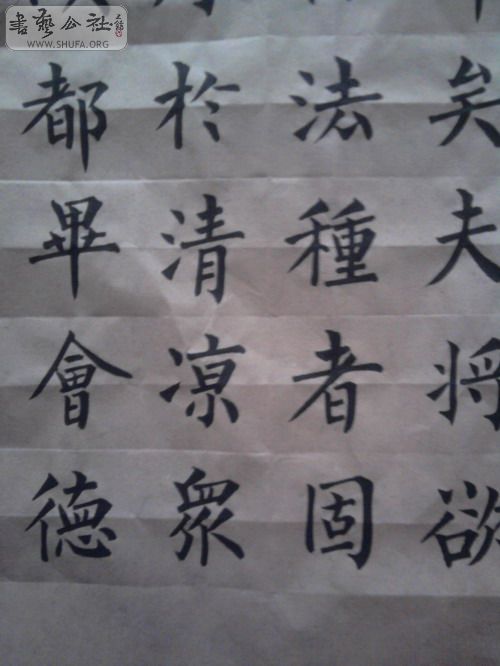 矣夫将欲
法種者固
於清凉衆
都畢會德
書藝公社
WWW.SHUFA.ORG